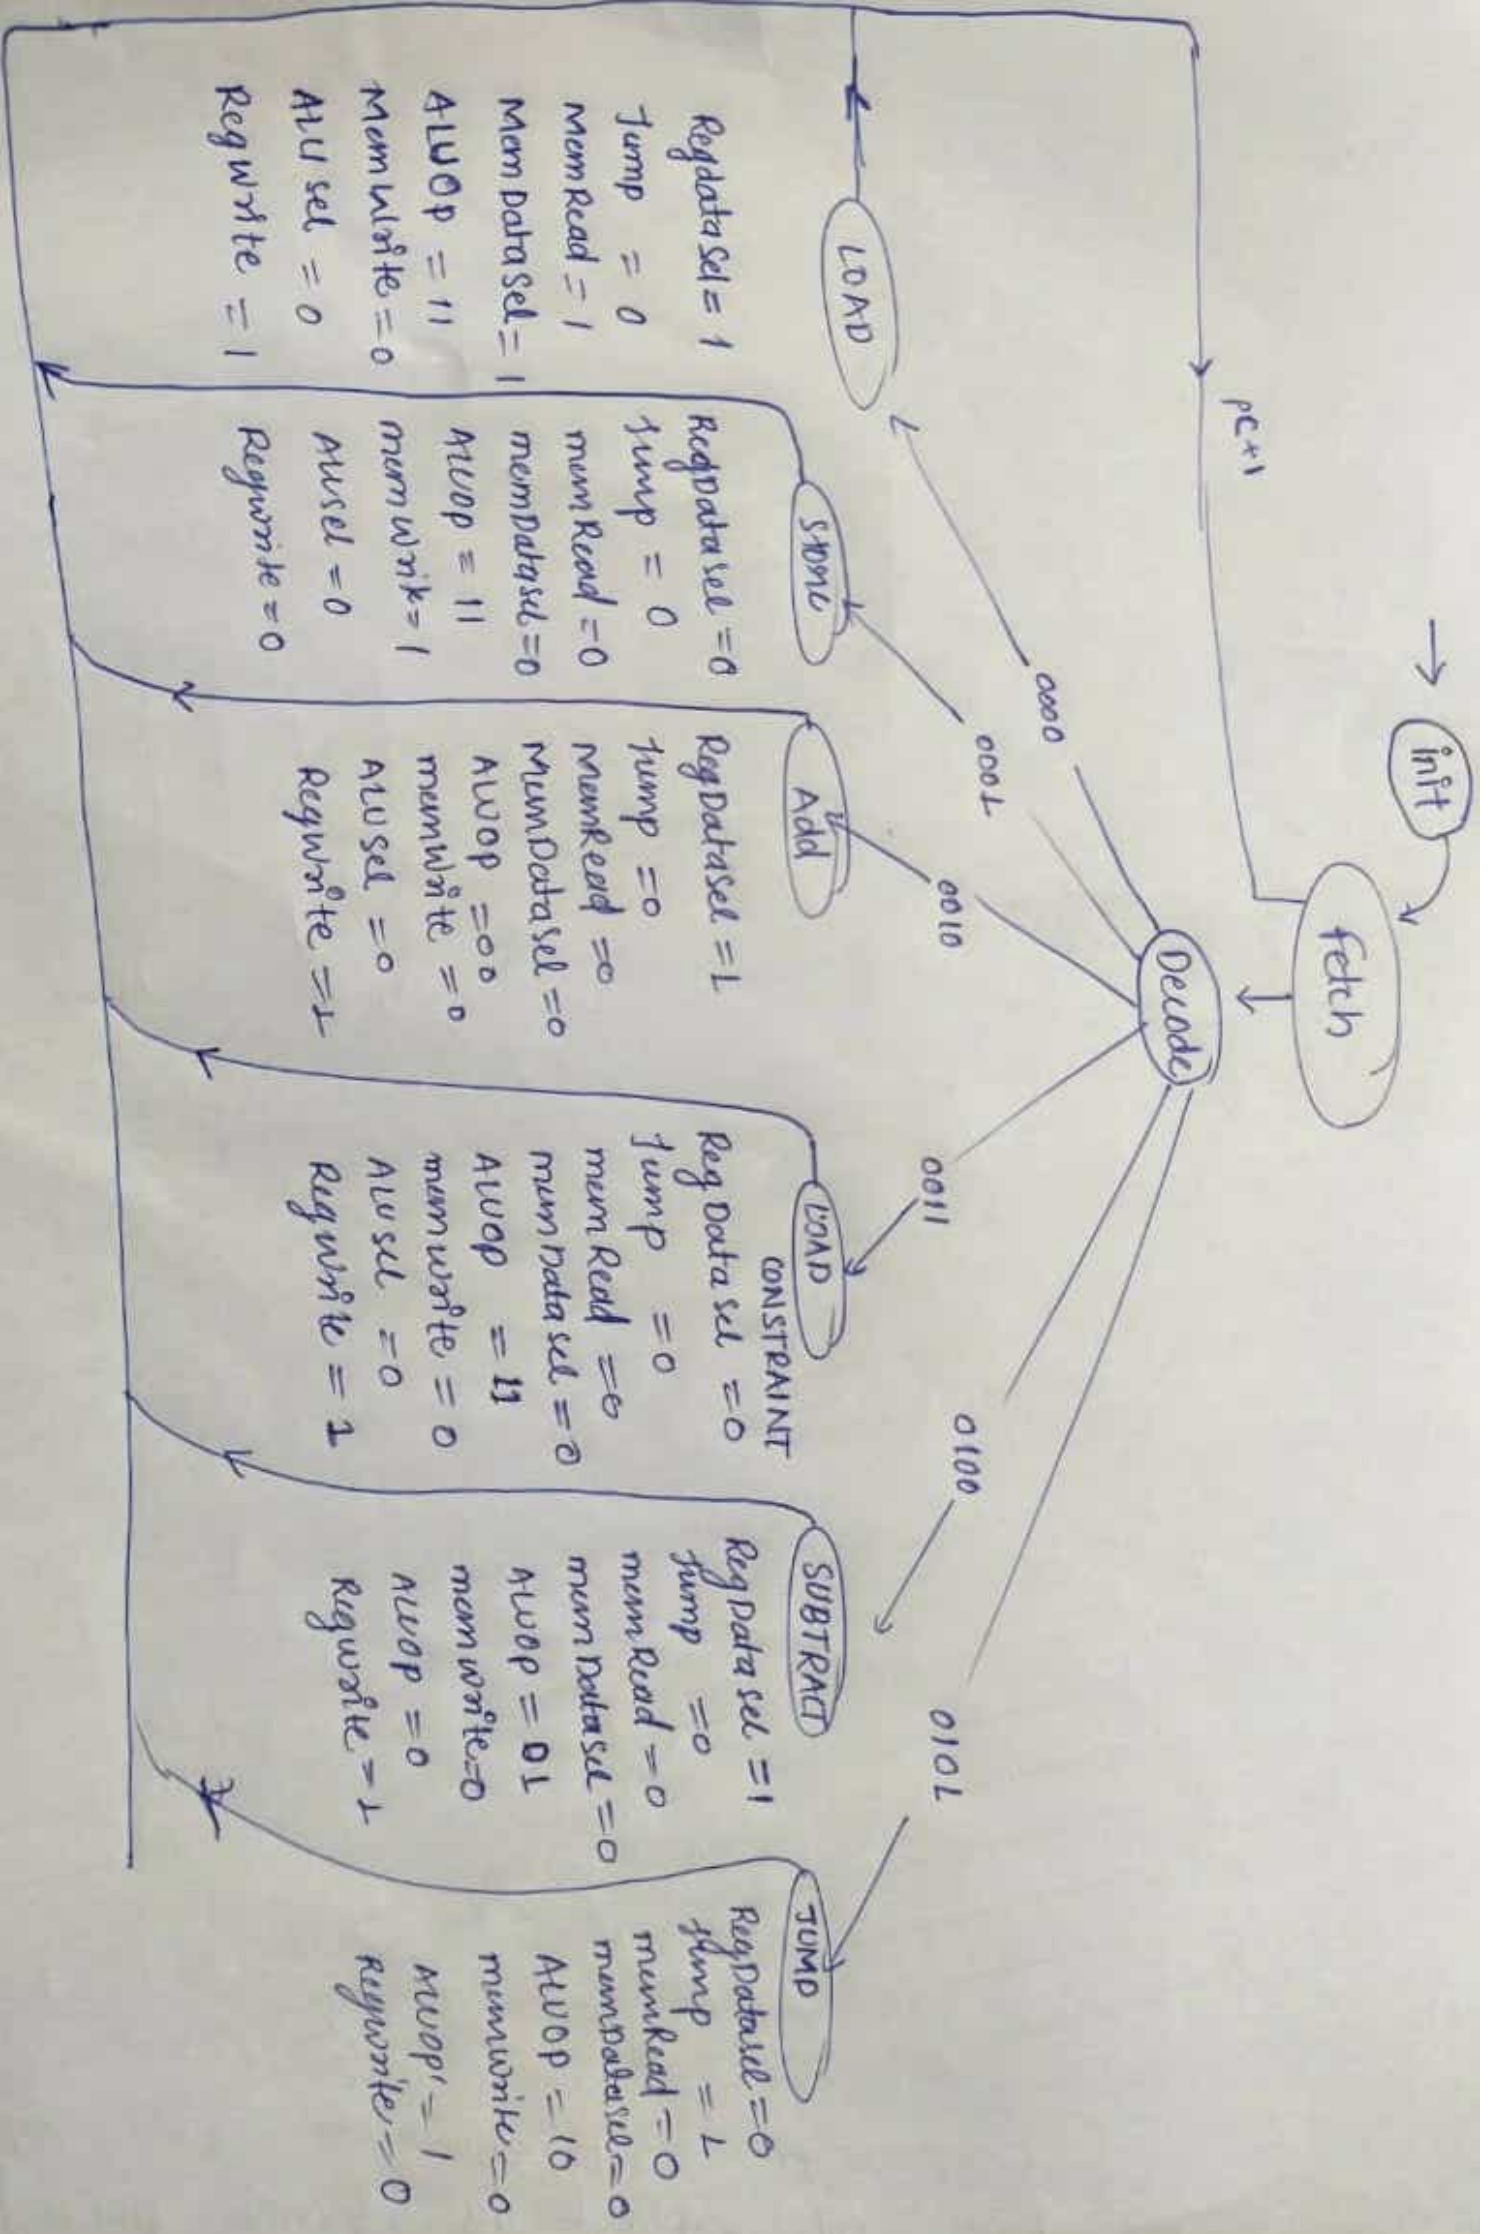 → init
fetch
PC+1
Decode
0000
0001
0010
0011
0100
0101
LOAD
RegdataSel = 1
Jump = 0
MemRead = 1
MemDataSel = 1
ALUOp = 11
MemWrite = 0
ALUSel = 0
RegWrite = 1
Store
RegDataSel = 0
Jump = 0
memRead = 0
memDataSel = 0
ALUOP = 11
memwrite = 1
ALUSel = 0
Regwrite = 0
Add
RegDataSel = 1
Jump = 0
MemRead = 0
MemDataSel = 0
ALUOP = 00
memwrite = 0
ALUSel = 0
Regwrite = 1
LOAD
CONSTRAINT
RegDataSel = 0
Jump = 0
memRead = 0
memDatasel = 0
ALUOP = 11
memwrite = 0
ALUSel = 0
Regwrite = 1
SUBTRACT
RegDataSel = 1
Jump = 0
memRead = 0
memDataSel = 0
ALUOP = 01
memwrite = 0
ALUOP = 0
Regwrite = 1
JUMP
RegDataSel = 0
Jump = 1
memRead = 0
memDataSel = 0
ALUOP = 10
memwrite = 0
ALUOP' = 1
Regwrite = 0